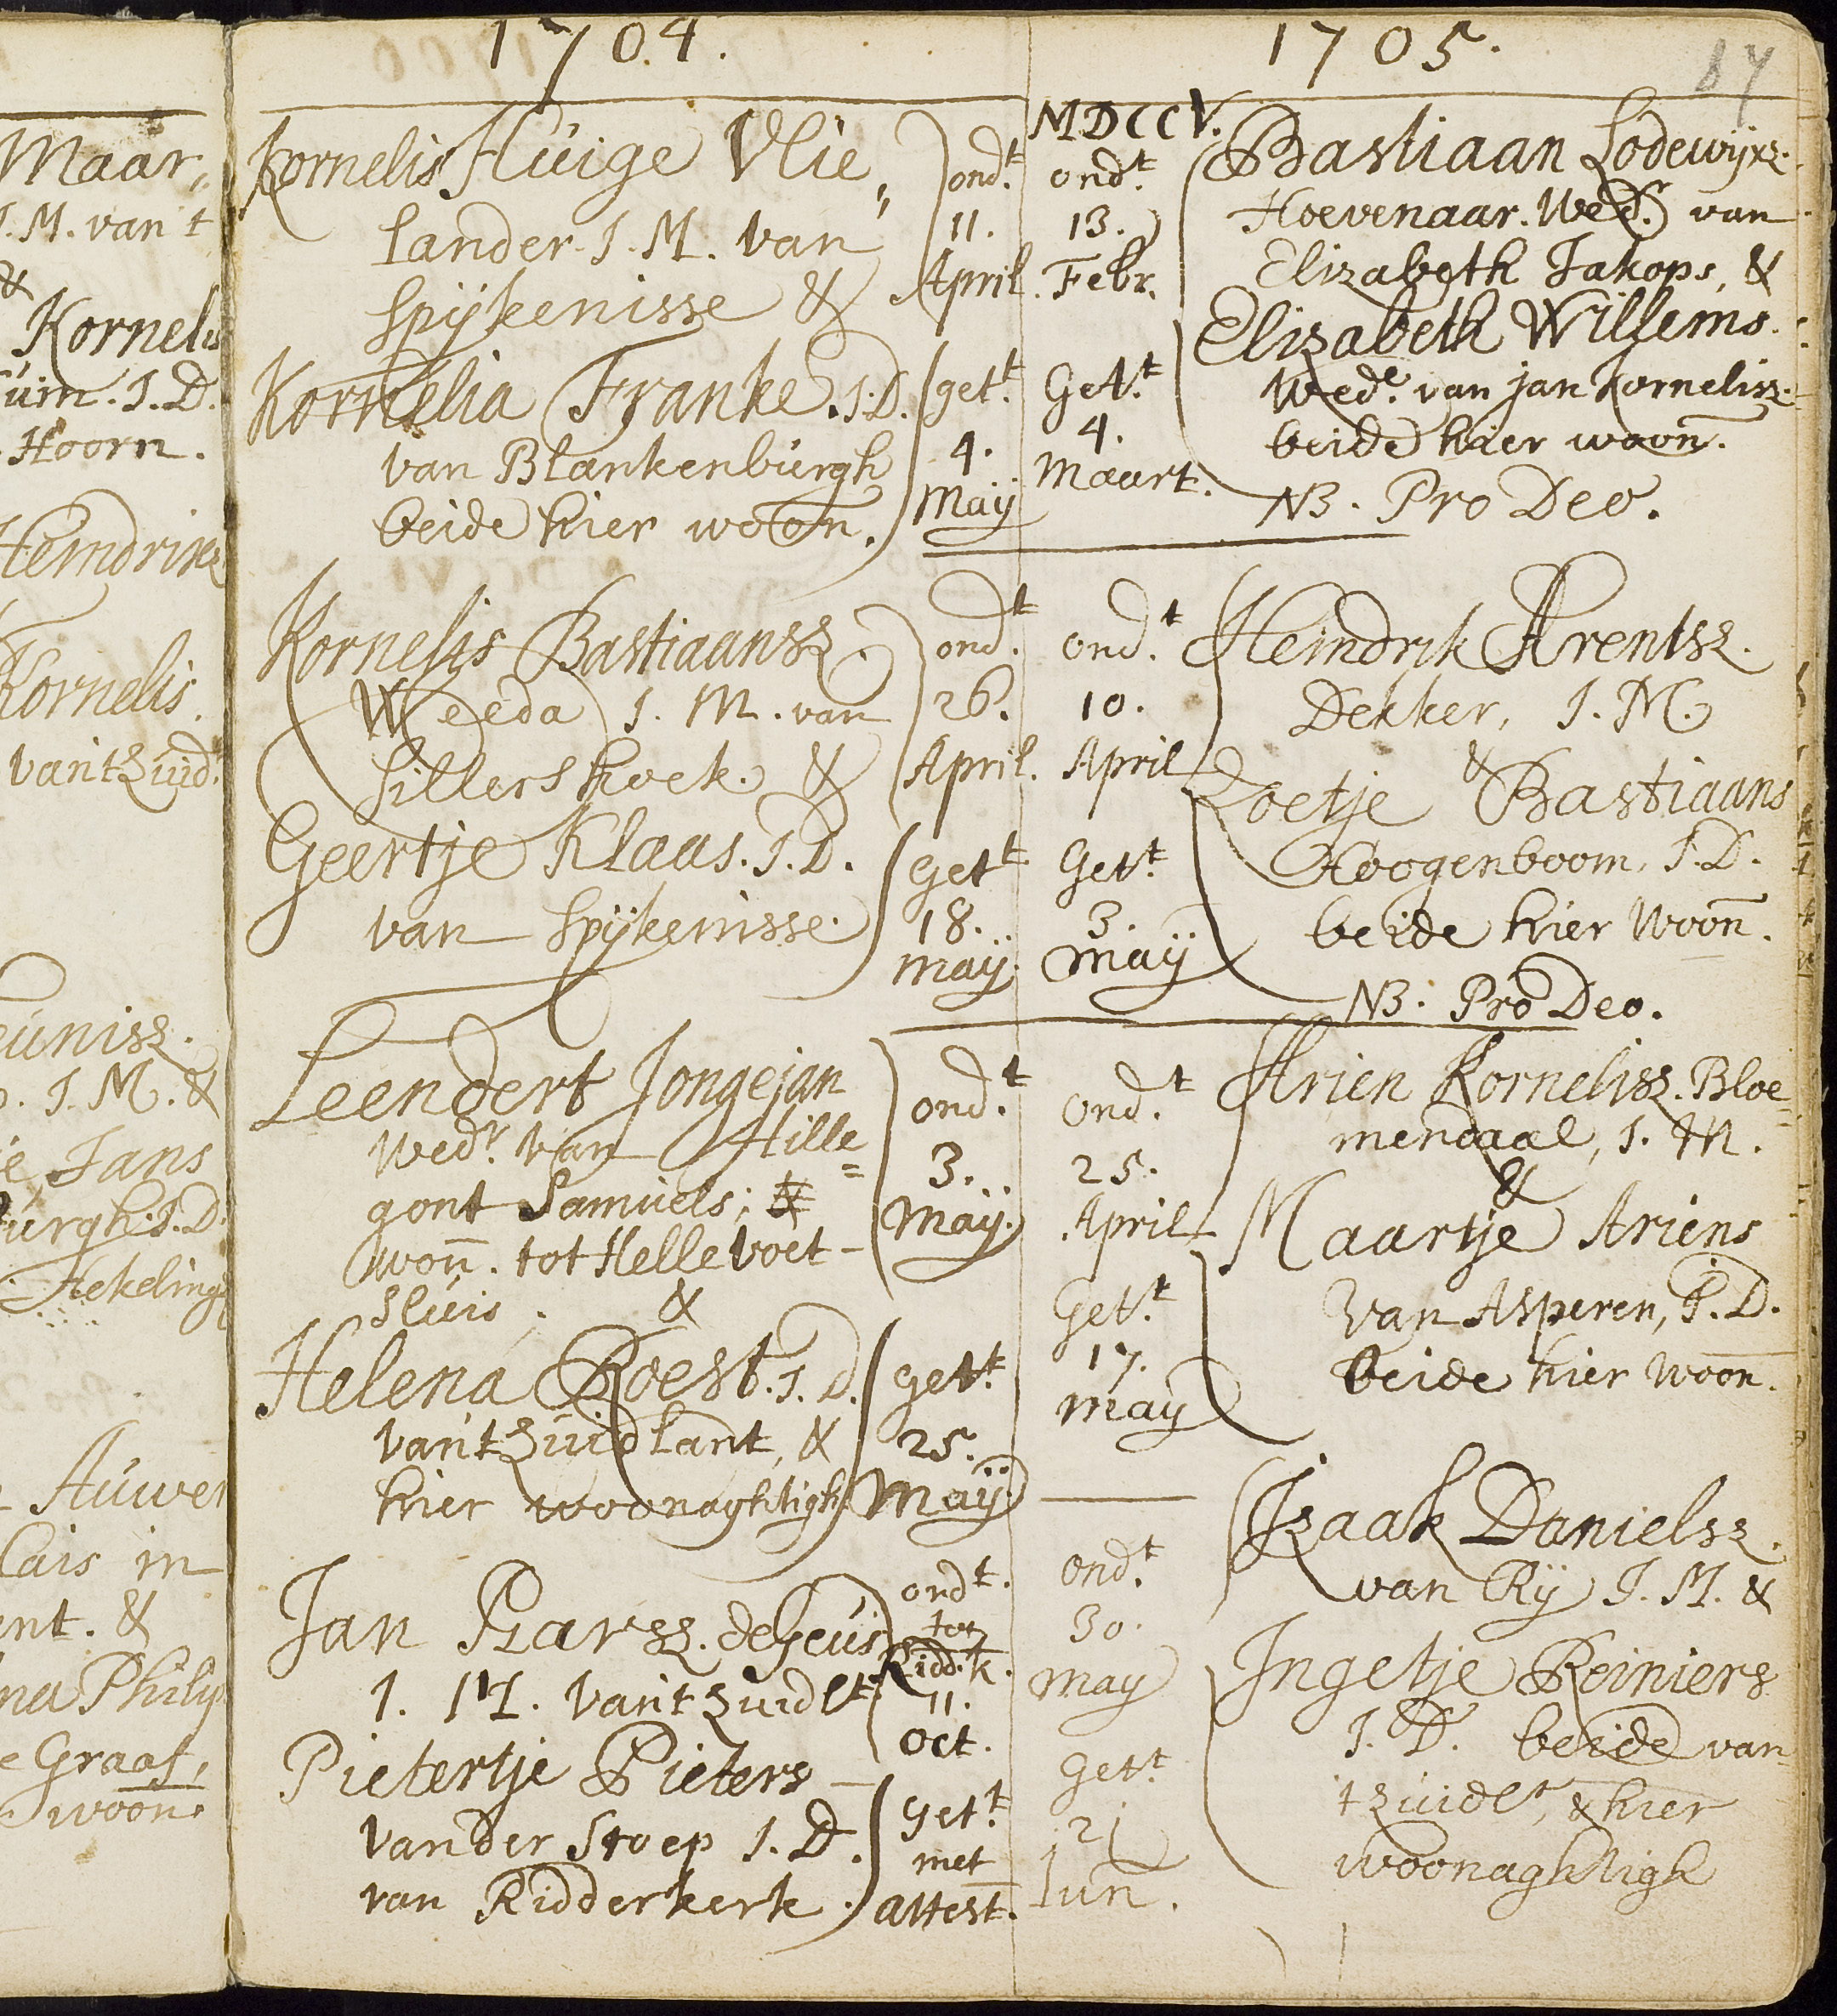 Maar„
J. M. van t
&
Kornelis
um. J. D.
Hoorn.
Heindrik
Kornelis.
van't Zuidt
eunisz.
. J. M. &
e Jans
urgh. J. D.
Hekeling
Auwer
lais in
ent. &
na Philip
e Graaf,
woon̄.
1704.
Kornelis Huige Vlie„
lander J. M. van
Spijkenisse &
Kornelia Franke. J. D.
van Blankenburgh
beide hier woon̄.
ond.t
11.
April.
get.t
4.
Maÿ
Kornelis Bastiaansz.
Weeda J. M. van
Sillershoek. &
Geertje Klaas. J. D.
van Spijkenisse.
ond.t
26.
April.
Gett.
18.
maÿ.
Leendert Jongejan
Wed.r van Hille=
gont Samuels; &
won̄. tot Hellevoet-
sluis, &
Helena Roest. J. D.
van't Zuidlant, &
hier woonaghtigh
ond.t
3.
Maÿ.
Get.t
25.
Maÿ.
Jan Barsz. de Geus
J. M. van't Zuidlt.
Pietertje Pieters
vander Stoep J. D.
van Ridderkerk.
ondt.
tot
Ridd.k.
11.
Oct.
Get.t
met
attest.
1705.
87
MDCCV.
ond.t
13.
Febr.
Get.t
4.
Maart.
Bastiaan Lodewijxz.
Hoevenaar. Wed.r van
Elizabeth Jakops, &
Elizabeth Willems.
Wed.e van Jan Kornelisz.
beide hier woon̄.
NB. Pro Deo.
ond.t
10.
April
Get.t
3.
Maÿ
Heindrik Arentsz.
Dekker, J. M.
&
Zoetje Bastiaans
Hoogenboom, J. D.
beide hier Woon̄.
NB. Pro Deo.
ond.t
25.
April
Get.t
17.
maÿ
Arien Kornelisz. Bloe=
mendaal, J. M.
&
Maartje Ariens
Van Asperen, J. D.
beide hier Woon̄.
ond.t
30.
May
Get.t
21
Jun̄.
Izaak Danielsz.
van Rij J. M. &
Ingetje Reiniers
J. D. beide van
t Zuidlt, & hier
woonaghtigh